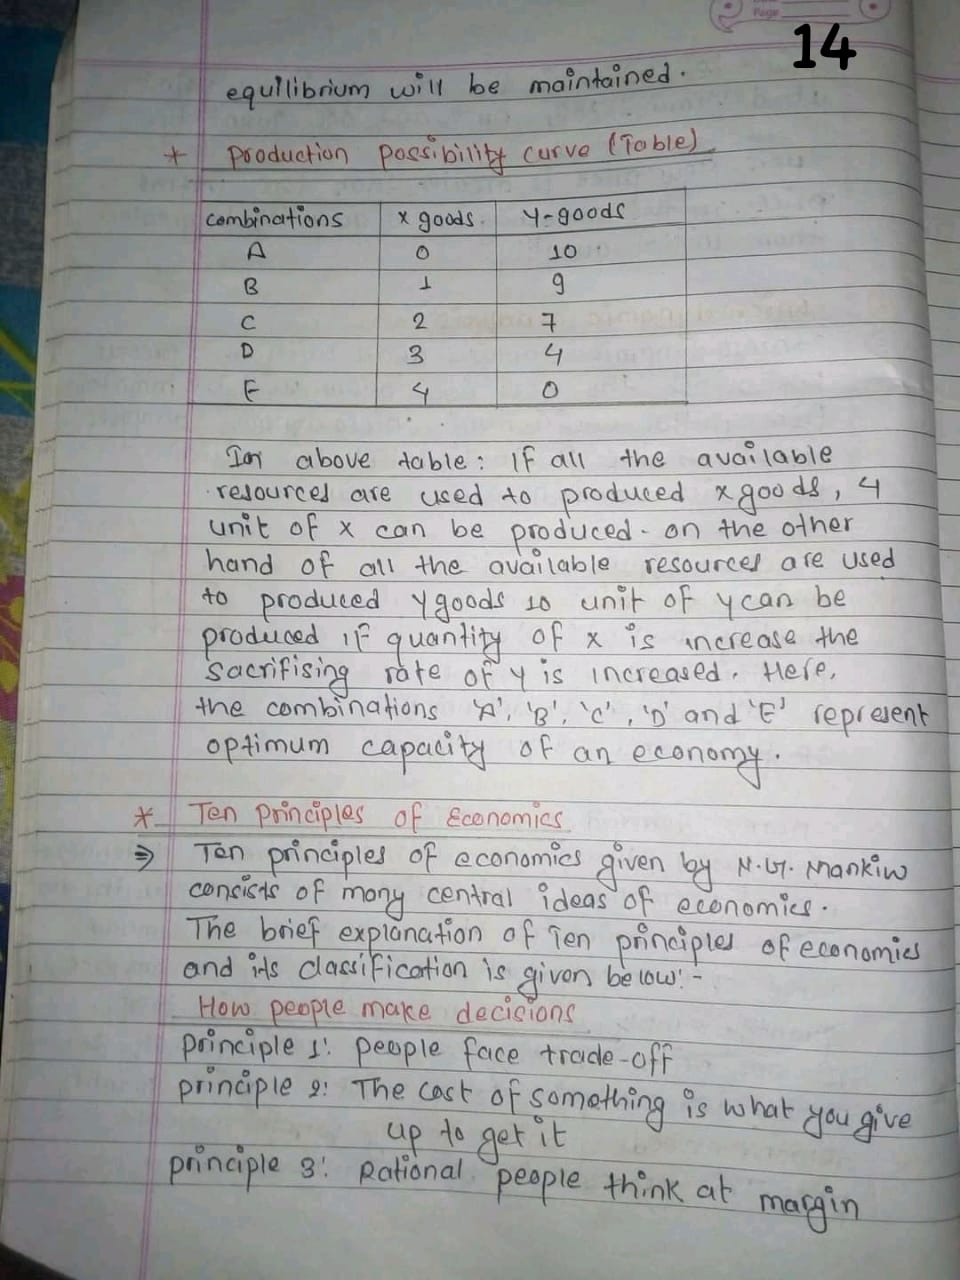 Page
14
equilibrium will be maintained.
* Production Possibility curve (Table)
combinations x goods. Y-goods
A 0 10
B 1 9
C 2 7
D 3 4
E 4 0
above table: If all the available
resources are used to produced x goods, 4
unit of x can be produced. on the other
hand of all the available resources are used
to produced Y goods 10 unit of y can be
produced if quantity of x is increase the
sacrifising rate of Y is increased. Here,
the combinations 'A', 'B', 'C', 'D' and 'E' represent
optimum capacity of an economy.
* Ten Principles of Economics
⇒ Ten principles of economics given by N.G. Mankiw
consists of many central ideas of economics.
The brief explanation of Ten principles of economics
and its classification is given below:-
How people make decisions
principle 1: people face trade-off
principle 2: The cost of something is what you give
up to get it
principle 3: Rational people think at margin